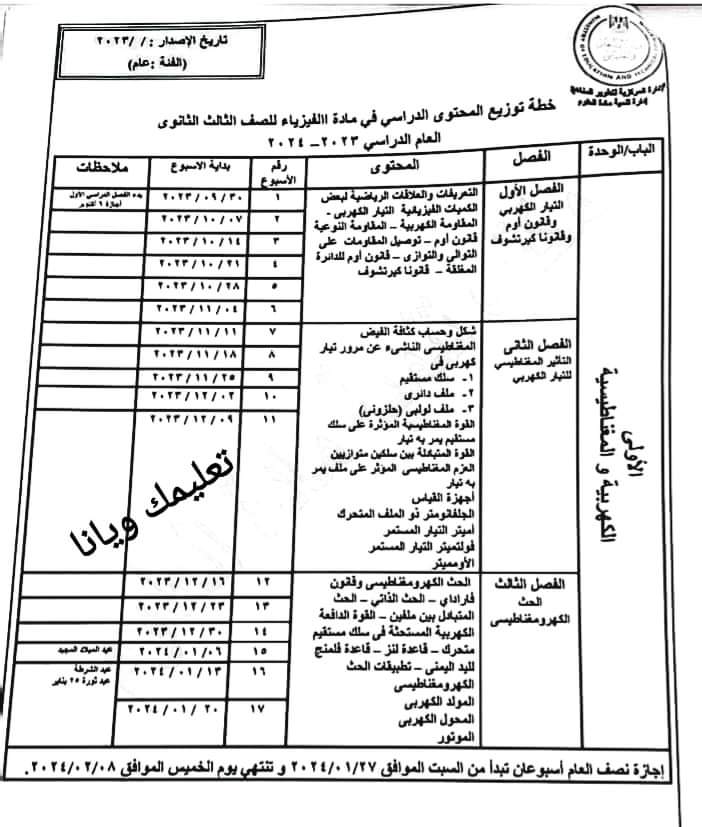 تاريخ الإصدار : / /٢٠٢٣
(الفئة :عام)
EDUCATION AND
الإدارة المركزية لتطوير المناهج
إدارة تنمية مادة العلوم
خطة توزيع المحتوى الدراسي في مادة الفيزياء للصف الثالث الثانوى
العام الدراسي ٢٠٢٣ – ٢٠٢٤
الباب/الوحدة الفصل المحتوى رقم الأسبوع بداية الاسبوع ملاحظات
الأولى
الكهربية و المغناطيسية
الفصل الأول
التيار الكهربي
وقانون أوم
وقانونا كيرتشوف
التعريفات والعلاقات الرياضية لبعض
الكميات الفيزيائية التيار الكهربى -
المقاومة الكهربية – المقاومة النوعية
قانون أوم – توصيل المقاومات على
التوالى والتوازى – قانون أوم للدائرة
المغلقة – قانونا كيرتشوف
١ ٢٠٢٣ / ٠٩ / ٣٠ بدء الفصل الدراسي الأول
اجازة ٦ أكتوبر
٢ ٢٠٢٣ / ١٠ / ٠٧
٣ ٢٠٢٣ / ١٠ / ١٤
٤ ٢٠٢٣ / ١٠ / ٢١
٥ ٢٠٢٣ / ١٠ / ٢٨
٦ ٢٠٢٣ / ١١ / ٠٤
الفصل الثانى
التأثير المغناطيسي
للتيار الكهربي
شكل وحساب كثافة الفيض
المغناطيسى الناشىء عن مرور تيار
كهربى فى
١- سلك مستقيم
٢- ملف دائرى
٣- ملف لولبى (حلزونى)
القوة المغناطيسية المؤثرة على سلك
مستقيم يمر به تيار
القوة المتبادلة بين سلكين متوازيين
العزم المغناطيسى المؤثر على ملف يمر
به تيار
أجهزة القياس
الجلفانومتر ذو الملف المتحرك
أميتر التيار المستمر
فولتميتر التيار المستمر
الأوميتر
٧ ٢٠٢٣ / ١١ / ١١
٨ ٢٠٢٣ / ١١ / ١٨
٩ ٢٠٢٣ / ١١ / ٢٥
١٠ ٢٠٢٣ / ١٢ / ٠٢
١١ ٢٠٢٣ / ١٢ / ٠٩
تعليمك ويانا
الفصل الثالث
الحث
الكهرومغناطيسى
الحث الكهرومغناطيسى وقانون
فاراداي – الحث الذاتي – الحث
المتبادل بين ملفين – القوة الدافعة
الكهربية المستحثة فى سلك مستقيم
متحرك – قاعدة لنز – قاعدة فلمنج
لليد اليمنى – تطبيقات الحث
الكهرومغناطيسى
المولد الكهربى
المحول الكهربى
الموتور
١٢ ٢٠٢٣ / ١٢ / ١٦
١٣ ٢٠٢٣ / ١٢ / ٢٣
١٤ ٢٠٢٣ / ١٢ / ٣٠
١٥ ٢٠٢٤ / ٠١ / ٠٦ عيد الميلاد المجيد
١٦ ٢٠٢٤ / ٠١ / ١٣ عيد الشرطة
عيد ثورة ٢٥ يناير
١٧ ٢٠٢٤ / ٠١ / ٢٠
إجازة نصف العام أسبوعان تبدأ من السبت الموافق ٢٠٢٤/٠١/٢٧ و تنتهي يوم الخميس الموافق ٢٠٢٤/٠٢/٠٨.